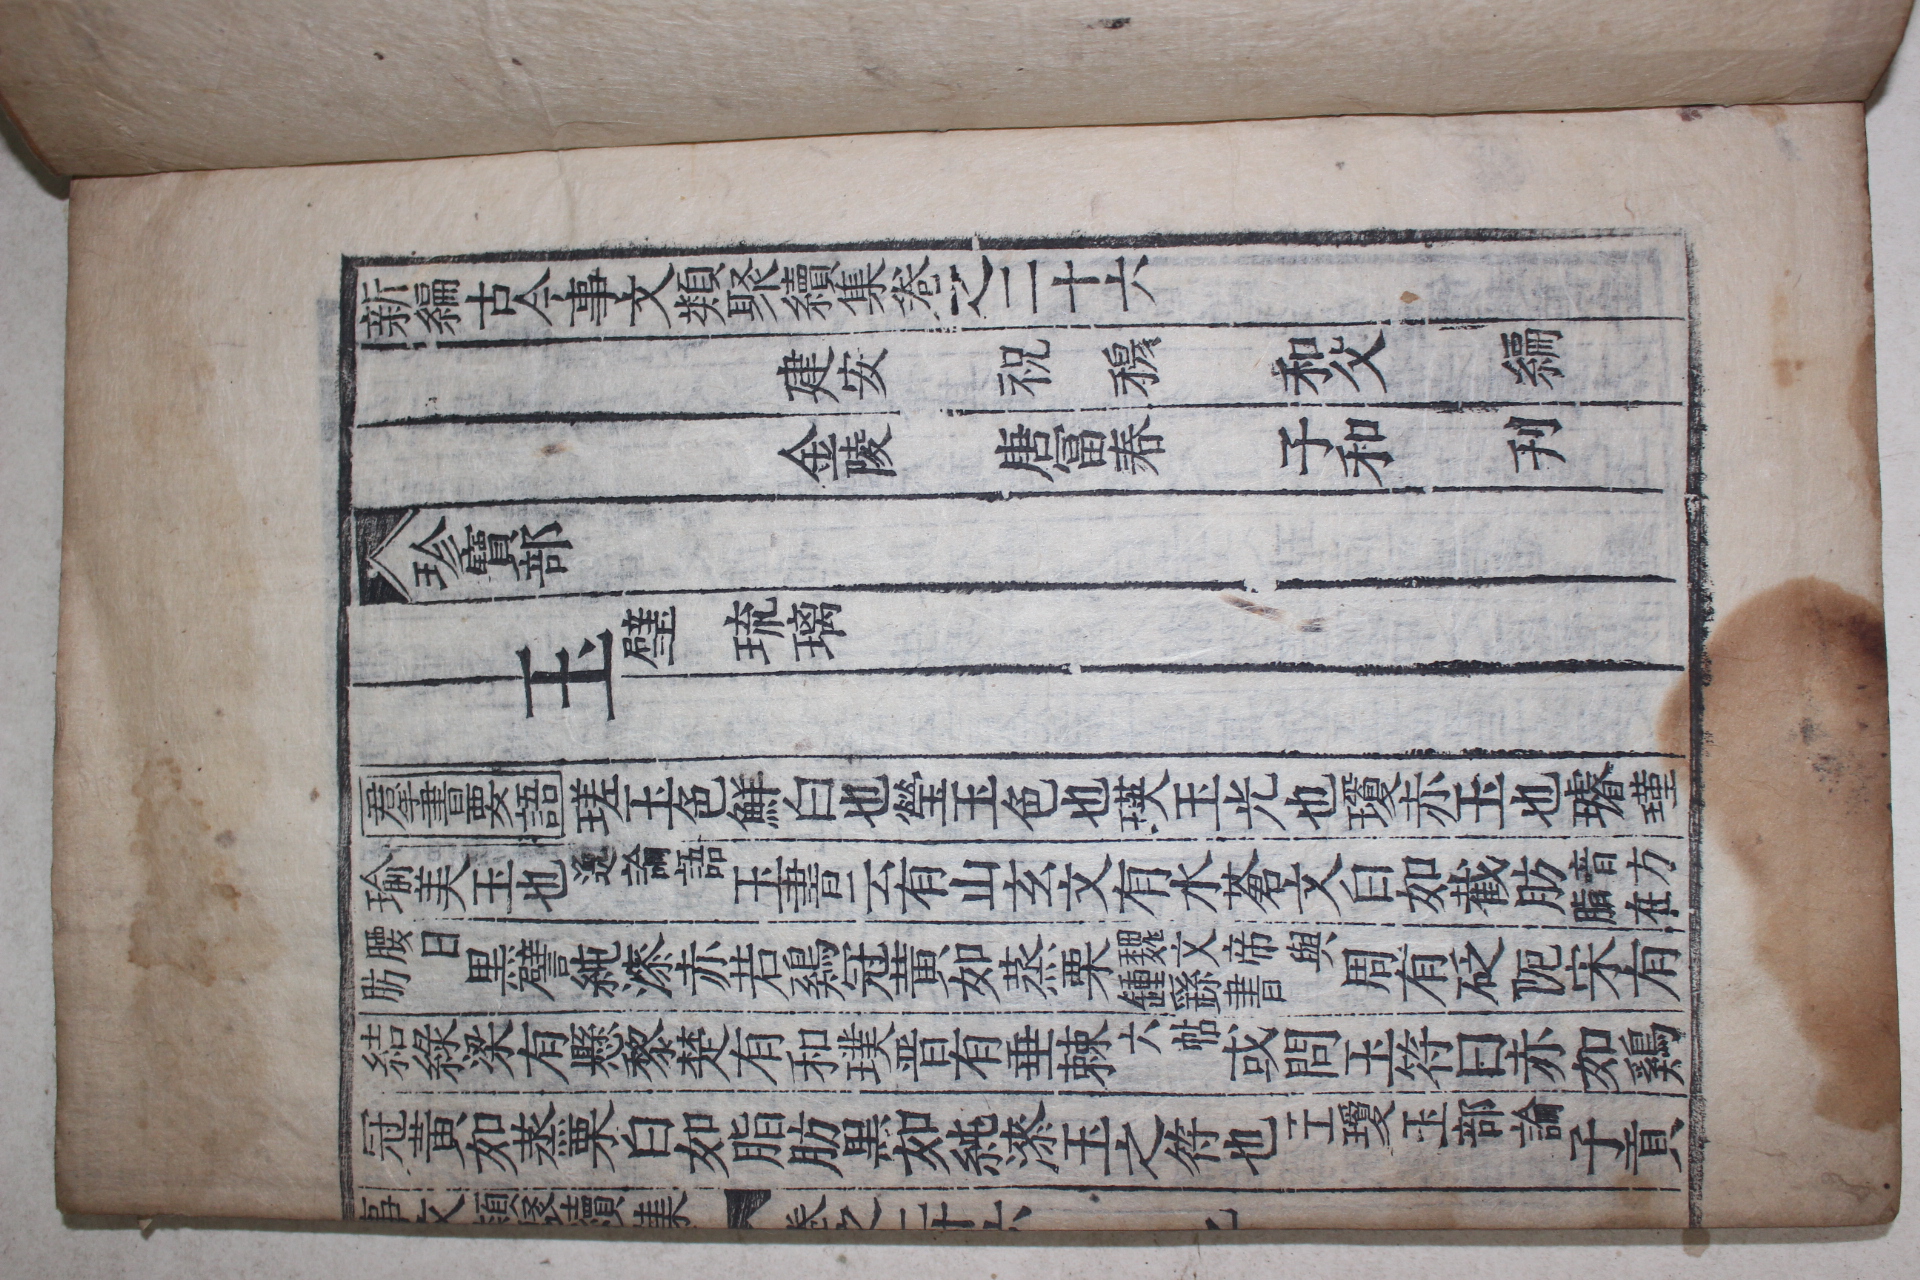 新編古今事文類聚續集卷之二十六
建安 祝 穆 和父 編
金陵 唐冨春 子和 刋
珍寶部
玉 璧 琉璃
羣書要語 瑳玉色鮮白也瑩玉色也瑛玉光也瓊赤玉也璿瑾
瑜美玉也逸論語玉書云有山玄文有水蒼文白如截肪音方脂在
腰曰肪黒譬純漆赤若鷄冠黃如蒸栗魏文帝與鍾繇書周有砥砨宋有
結綠梁有懸黎楚有和璞晋有垂棘六帖或問玉符曰赤如鷄
冠黃如蒸栗白如脂肪黒如純漆玉之符也王瓊玉部論子貢
事文類聚續集 卷之二十六